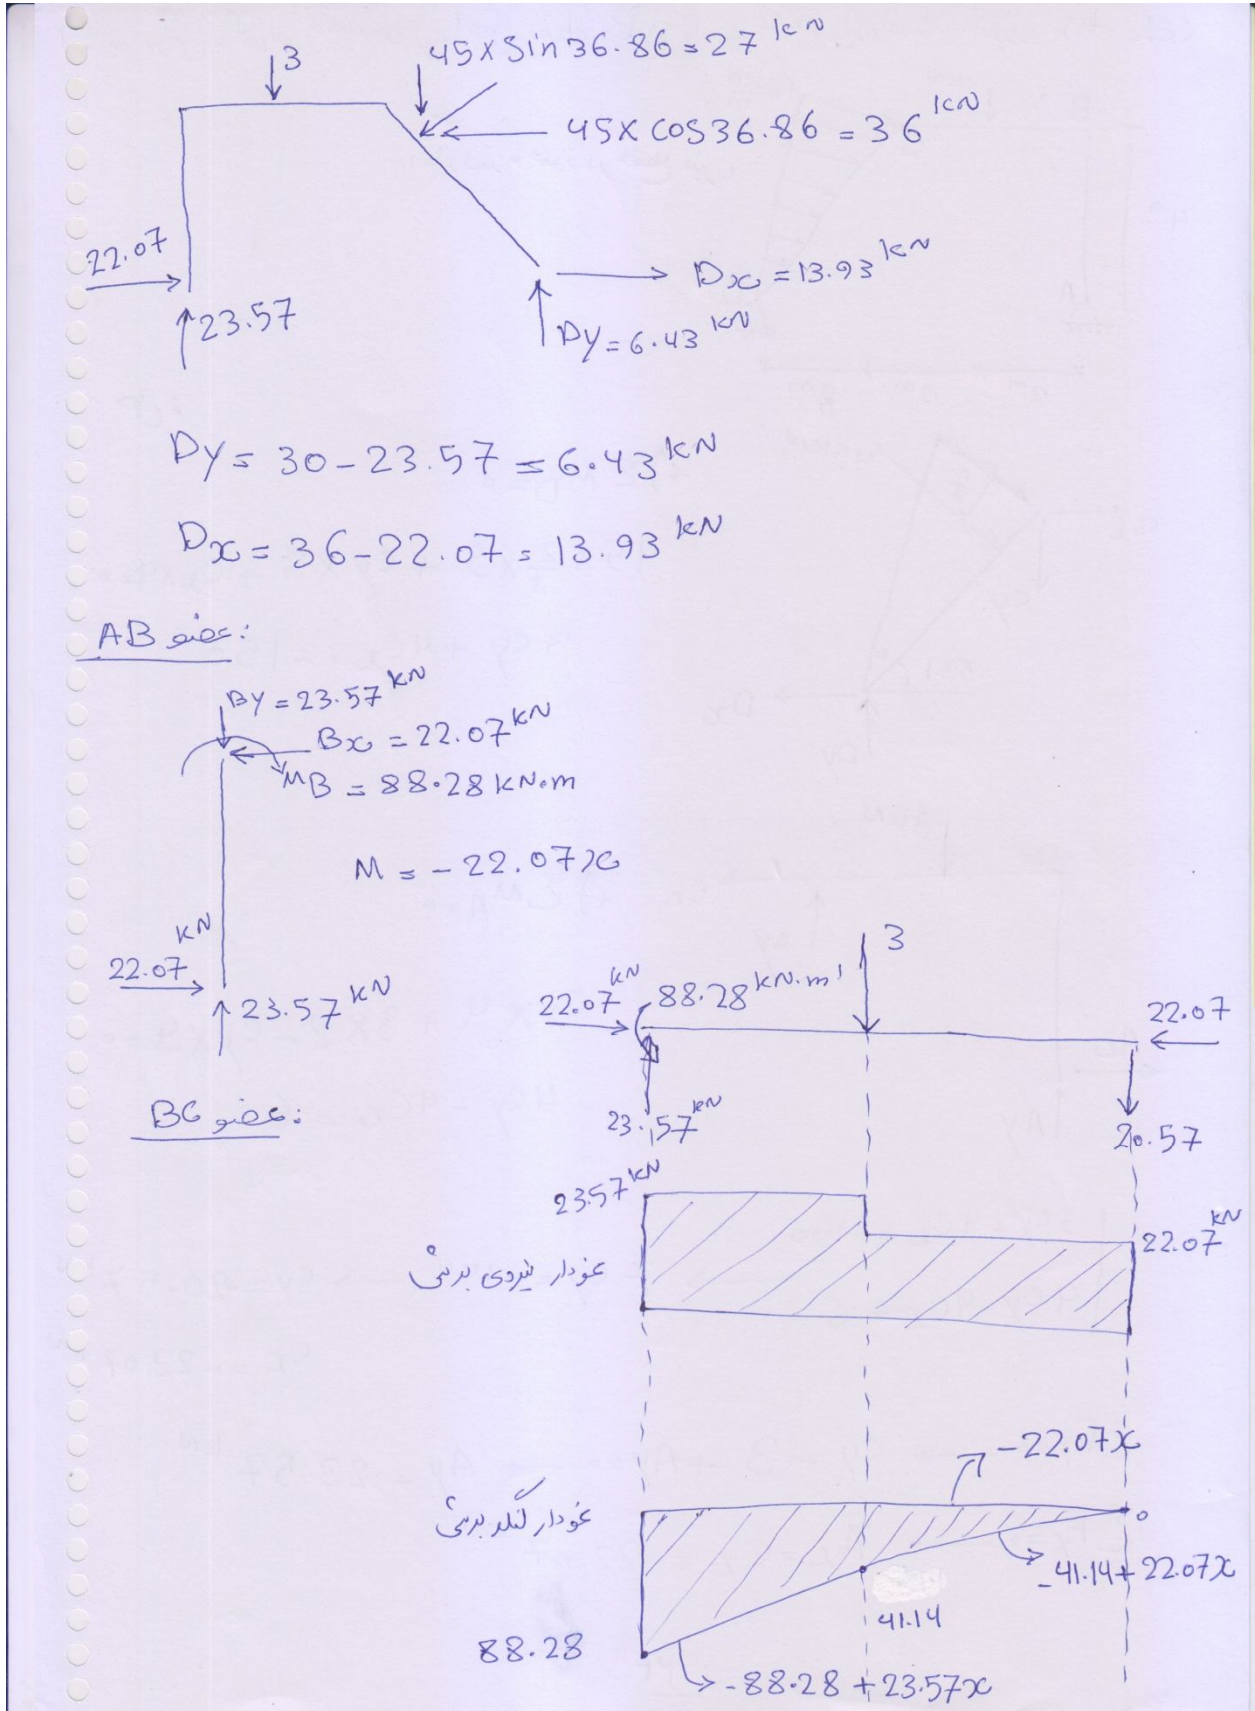 3
45×Sin36.86=27 kN
45×cos36.86=36 kN
22.07
23.57
Dx=13.93 kN
Dy=6.43 kN
Dy=30-23.57=6.43 kN
Dx=36-22.07=13.93 kN
عضو AB:
By=23.57 kN
Bx=22.07 kN
MB=88.28 kN.m
M=-22.07x
22.07 kN
23.57 kN
3
22.07 kN
88.28 kN.m
22.07
عضو BC:
23.57 kN
20.57
23.57 kN
22.07 kN
نمودار نیروی برشی
-22.07x
نمودار لنگر برشی
0
-41.14+22.07x
41.14
88.28
-88.28+23.57x